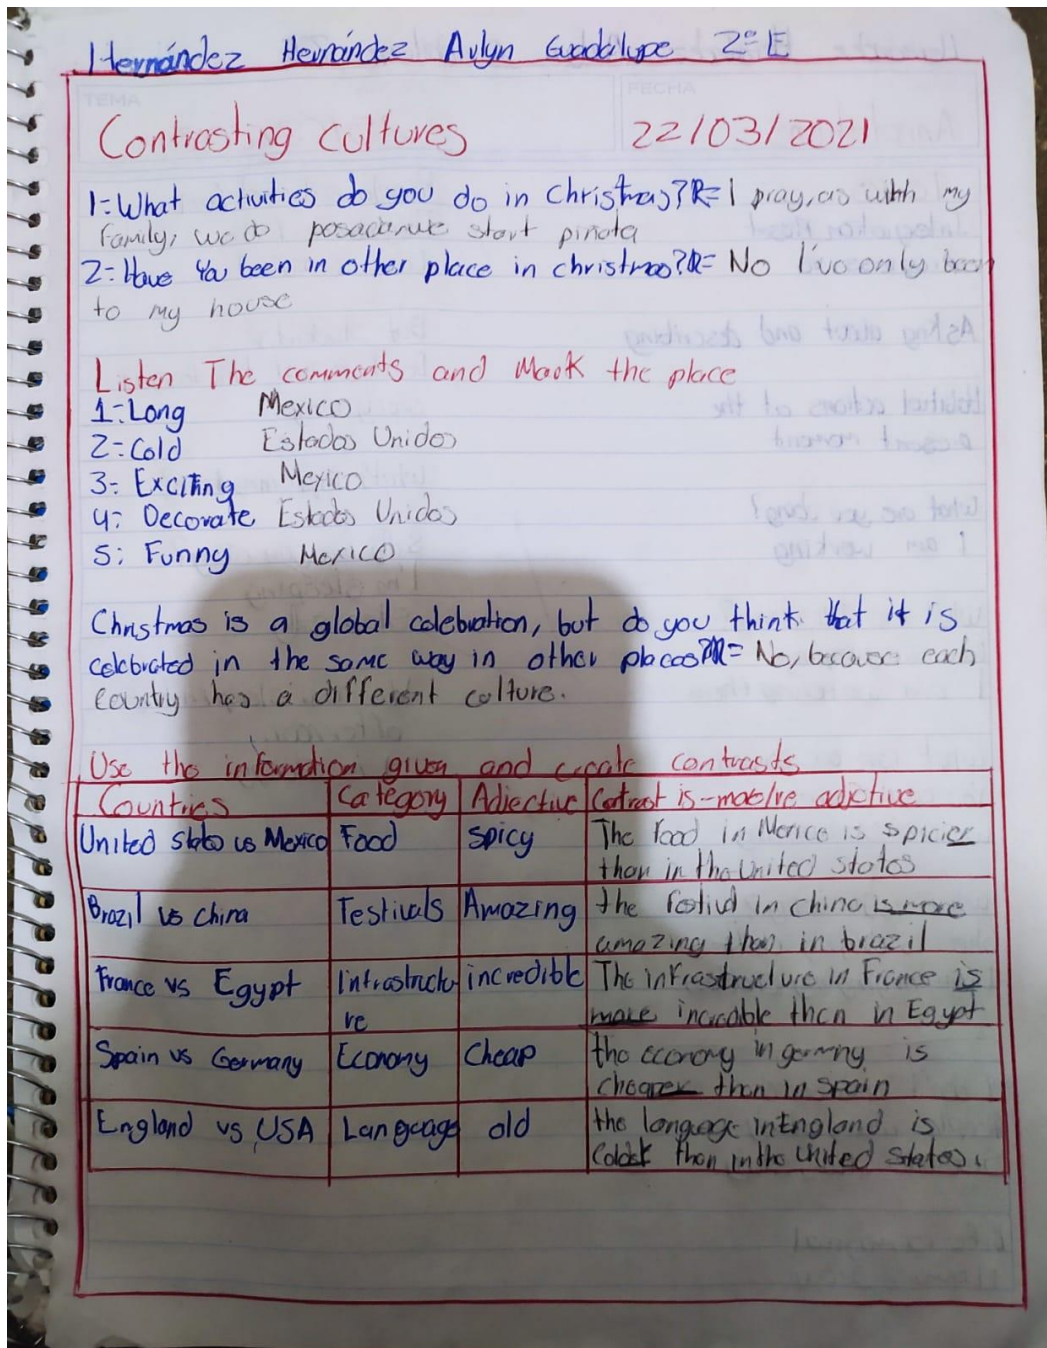 Hernández Hernández Avlyn Guadalupe 2º E
TEMA
FECHA
Contrasting Cultures 22/03/2021
1=What activities do you do in Christmas? R= I pray, as with my
family, we do posada we start piñata
2= Have You been in other place in christmas? R= No I've only been
to my house
Listen The comments and Mark the place
1=Long Mexico
2=Cold Estados Unidos
3= Exciting Mexico
4= Decorate Estados Unidos
5= Funny Mexico
Christmas is a global celebration, but do you think that it is
celebrated in the same way in other places? R= No, because each
country has a different culture.
Use the information given and create contrasts
Countries Category Adjective Contrast is - more/re adjective
United States vs Mexico Food spicy The food in Mexico is spicier
than in the United states
Brazil vs china Festivals Amazing the festival in china is more
amazing than in brazil
France vs Egypt Infrastructu incredible The infrastructure in France is
re more incredible than in Egypt
Spain vs Germany Economy Cheap the economy in germany is
cheaper than in spain
England vs USA Language old the language in England is
Colder than in the united states.